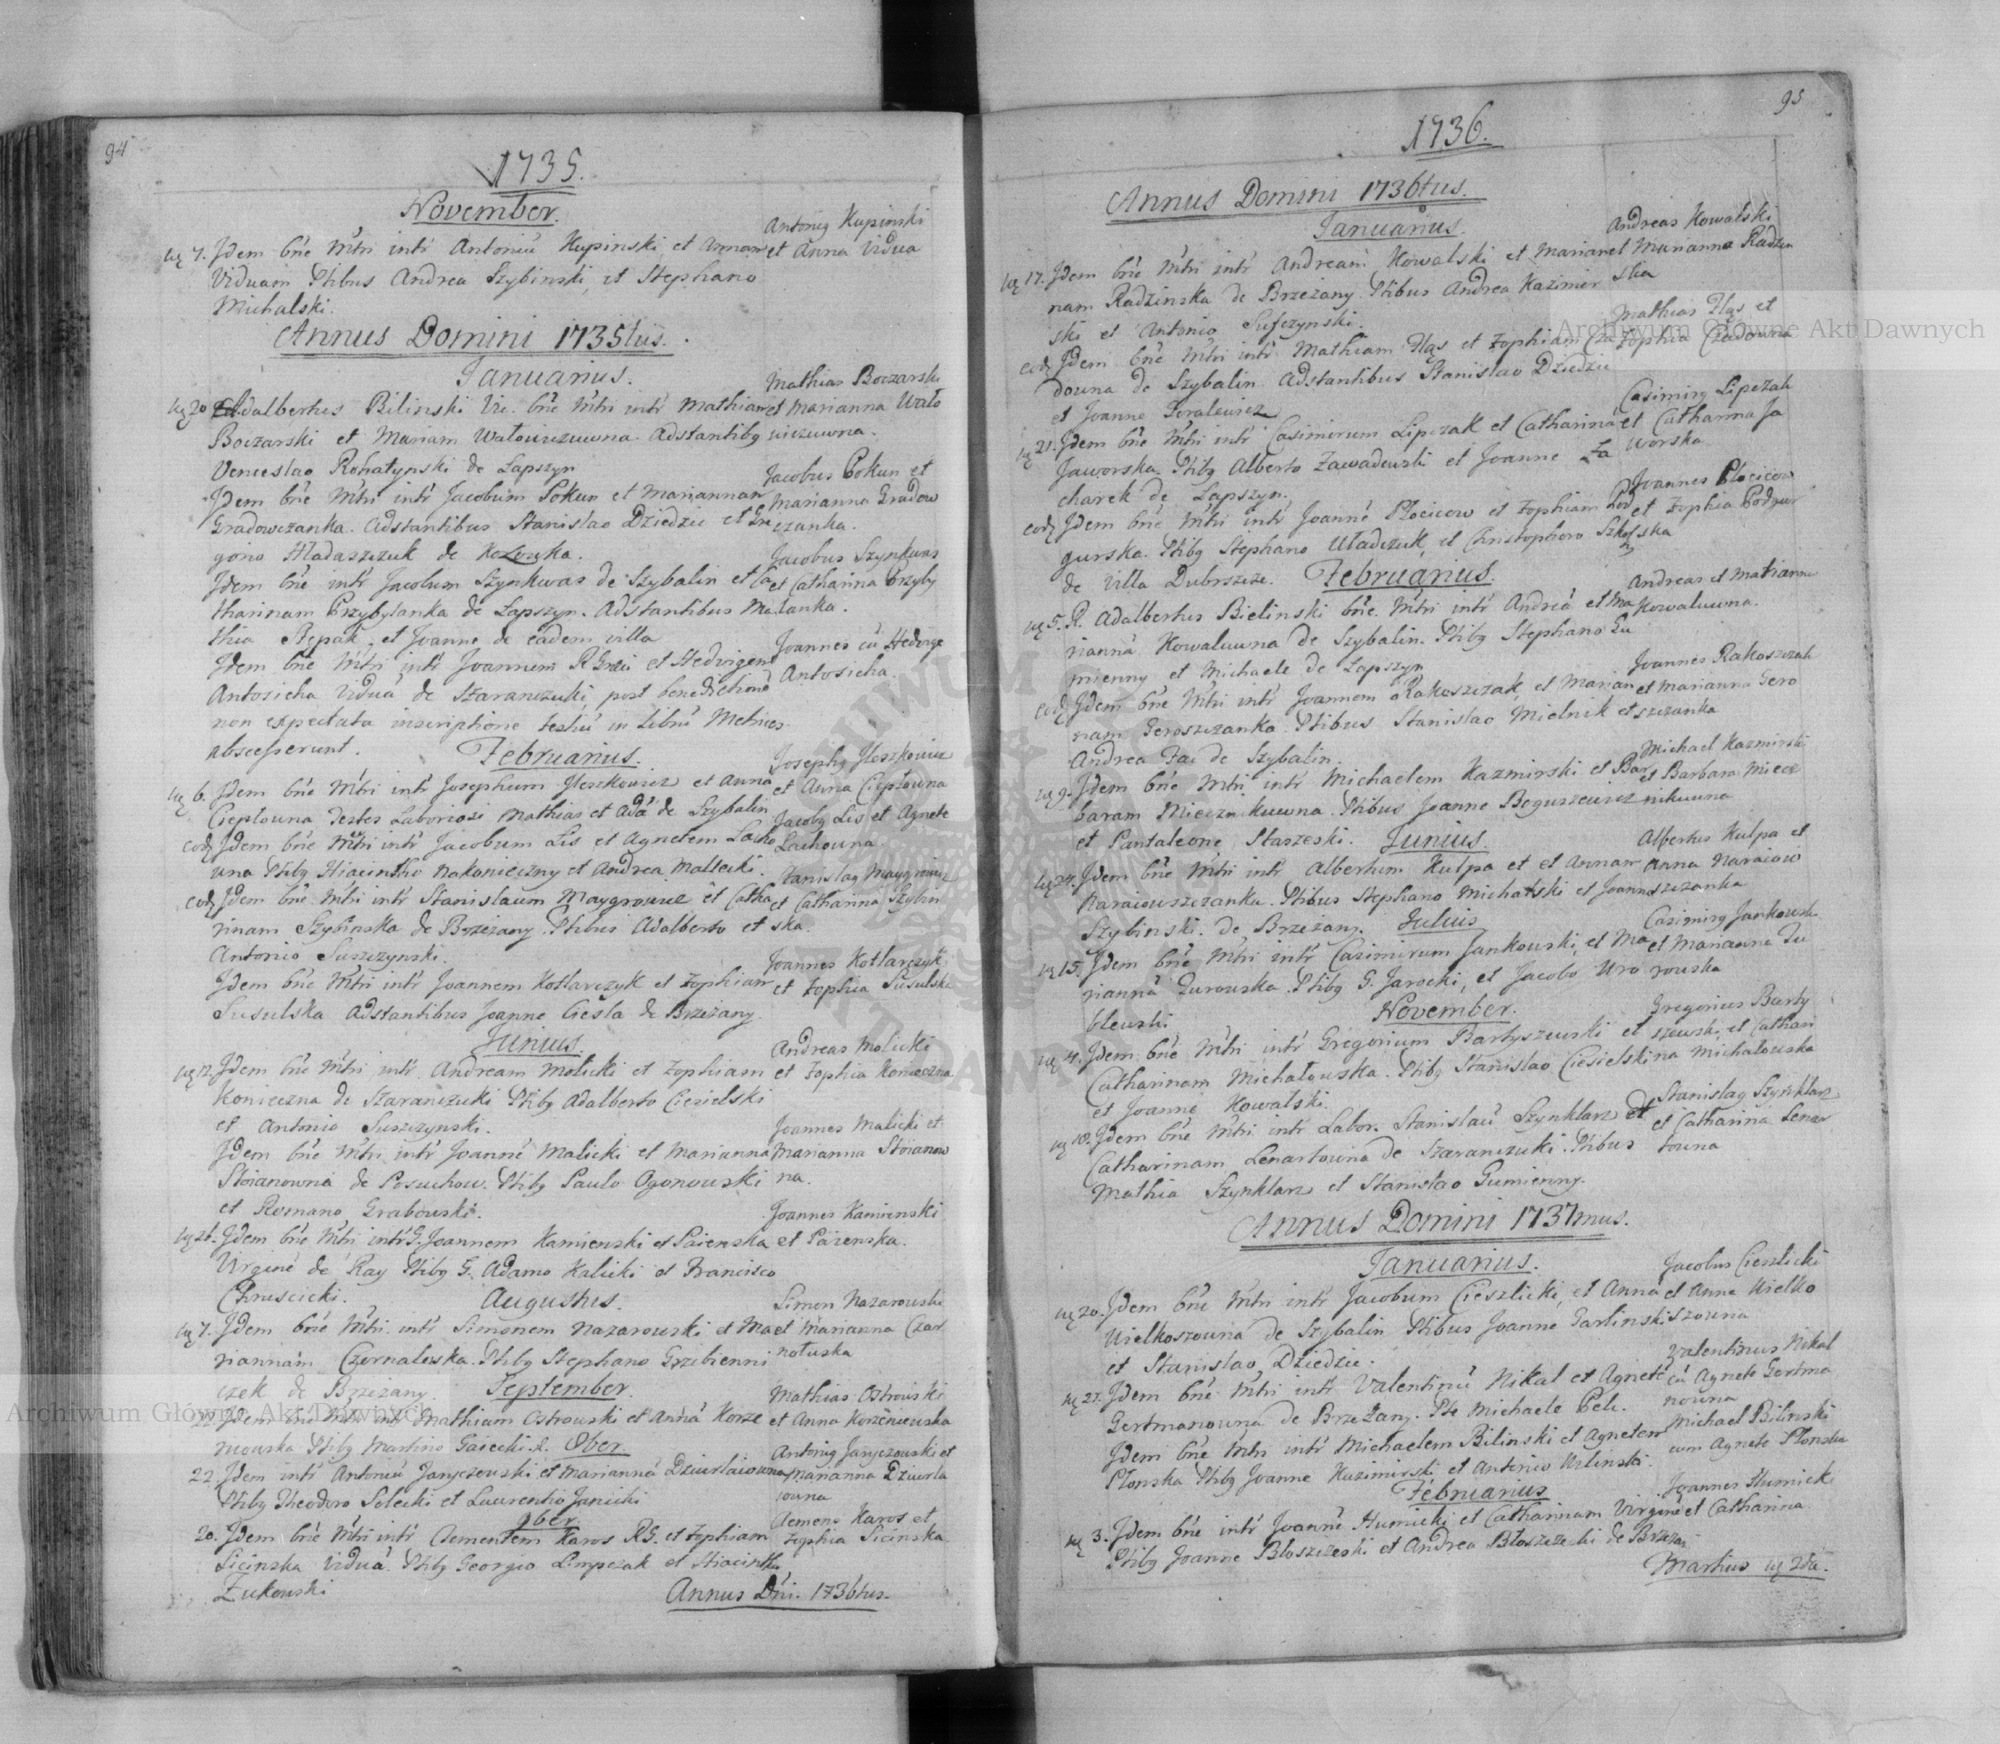 94
1735.
November.
7. Idem bñe Mtri intr Antoniũ Kupinski et Annam
Viduam Ptibus Andrea Szybinski, et Stephano
Michalski.
Antonig Kupinski
et Anna Vidua
Annus Domini 1735tus.
Januarius.
20 Adalbertus Bilinski Vic. bñe Mtri intr Mathiam
Boczarski et Mariam Watowiczuwna. Adstantibg
Venceslao Rohatynski de Lapszyn
Mathias Boczarski
et Marianna Wato
wiczuwna.
Idem bñe Mtri intr Jacobum Pokun et Mariannam
Gradowczanka. Adstantibus Stanislao Dziedzic et Gre
gorio Hladaszczuk de Kozowka.
Jacobus Pokun et
Marianna Gradow
czanka.
Idem bñe intr Jacobum Szynkwas de Szybalin et Ca
tharinam Przybylanka de Lapszyn. Adstantibus Ma
thia Rzepak, et Joanne de eadem villa
Jacobus Szynkwas
et Catharina Przyby
lanka.
Idem bñe Mtri intr Joannem R Grzei et Hedvigem
Antosicha Viduã de Szaranczuki, post benedictionẽ
non expectata inscriptione testiũ in Librũ Metrices
abscesserunt.
Joannes cũ Hedvige
Antosicha.
Februarius.
6. Idem bñe Mtri intr Josephum Jleszkowicz et Annã
Cieplouna Testes Laboriosi Mathias et Adã de Szybalin
Josephg Jleszkowicz
et Anna Ciepłowna
eodẽ Idem bñe Mtri intr Jacobum Lis et Agnetem Lacho
wna Ptibg Hiacintho Nakonieczny et Andrea Mallecki.
Jacobg Lis et Agnete
Lachowna
eodẽ Idem bñe Mtri intr Stanislaum Maygrowicz et Catha
rinam Szybinska de Brzezany. Ptibus Adalberto et
Antonio Suszczynski.
Stanislag Maygrowicz
et Catharina Szybin
ska.
Idem bñe Mtri intr Joannem Kotlarczyk et Zophiam
Susulska Adstantibus Joanne Ciesla de Brzezany.
Joannes Kotlarczyk
et Zophia Susulska
Junius.
12. Idem bñe Mtri intr Andream Molicki et Zophiam
Konieczna de Szaranczuki Ptibg Adalberto Ciesielski
et Antonio Suszczynski.
Andreas Molicki
et Zophia Konieczna
Idem bñe Mtri intr Joannẽ Malicki et Marianna
Stoianowna de Posuchow. Ptibg Paulo Ogonowski
et Romano Grabowski.
Joannes Malicki et
Marianna Stoianow
na.
26. Idem bñe Mtri intr G. Joannem Kamienski et Paienska
Virginẽ de Ray Ptibg G. Adamo Kalicki et Francisco
Chruscicki.
Joannes Kamienski
et Paienska.
Augustus.
7. Idem bñe Mtri intr Simonem Nazarowski et Ma
riannam Czornaleska. Ptibg Stephano Grzebienni
czek de Brzezany.
Simon Nazarowski
et Marianna Czar
notuska
September.
Idem bñe Mtri intr Mathiam Ostrowski et Annã Korze
niowska Ptibg Martino Gaiecki
Mathias Ostrowski
et Anna Korzeniewska
8ber.
22. Idem intr Antoniũ Janyczewski et Mariannã Dziurlaiowna
Ptibg Theodoro Solecki et Laurentio Janicki
Antonig Janyczowski et
Marianna Dziurla
iowna
9ber.
20. Idem bñe Mtri intr Clementem Karos RG. et Zophiam
Sicinska Viduã. Ptibg Georgio Limpczak et Hiacintho
Żukowski
Clemens Karos et
Zophia Sicinska
Annus Dni. 1736tus.
95
1736.
Annus Domini 1736tus.
Januarius.
17. Idem bñe Mtri intr Andream Kowalski et Marian
nam Radzinska de Brzezany. Ptibus Andrea Kazimir
ski et Antonio Sufczynski.
Andreas Kowalski
et Marianna Radzin
ska
eodẽ Idem bñe Mtri intr Mathiam Flgs et Zophiam Cza
douna de Szybalin Adstantibus Stanislao Dziedzic
et Joanne
Mathias Flgs et
Zophia Czadowna
21. Idem bñe Mtri intr Casimirum Lipczak et Catharina
Jaworska. Ptibg Alberto Zawadowski et Joanne Za
charek de Lapszyn.
Casimirg Lipczak
et Catharina Ja
worska
eodẽ Idem bñe Mtri intr Joannẽ Plocicow et Zophiam Pod
gurska. Ptibg Stephano Uładczuk, et Christophoro
de Villa Dubrszcze.
Joannes Plocicow
et Zophia Podgur
ska
Februarius.
5. R. Adalbertus Bielinski bñe Mtri intr Andreã et Ma
riannã Kowaluwna de Szybalin. Ptibg Stephano Gu
mienny et Michaele de Lapszyn
Andreas et Marianna
Kowaluwna.
eodẽ Idem bñe Mtri intr Joannem Rakoszczak, et Marian
nam Geroszczanka. Ptibus Stanislao Mielnik et
Andrea Zai de Szybalin.
Joannes Rakoszczak
et Marianna Gero
szczanka
9. Idem bñe Mtri intr Michaelem Kazmirski et Bar
baram Miecznikuwna. Ptibus Joanne Beguszewicz
et Pantaleone Staszeski.
Michael Kazmirski
et Barbara Miecz
nikuwna
Junius.
24. Idem bñe Mtri intr Albertum Kulpa et et Annam
Naraiowszczanka. Ptibus Stephano Michalski et Joanne
Szybinski. de Brzezany.
Albertus Kulpa et
Anna Naraiow
szczanka
Julius
15. Idem bñe Mtri intr Casimirum Jankowski, et Ma
riannã Zurowska. Ptibg G. Jarocki, et Jacobo Wro
blewski
Casimirg Jankowski
et Marianna Zu
rowska
November.
4. Idem bñe Mtri intr Gregorium Bartyszewski et
Catharinam Michałowska. Ptibg Stanislao Ciesielski
et Joanne Kowalski.
Gregorius Barty
szewski, et Cathari
na Michalowska
18. Idem bñe Mtri intr Labor. Stanislaũ Szynklarz et
Catharinam Lenartowna de Szaranczuki. Ptibus
Mathia Szynklarz et Stanislao Gumienny.
Stanislag Szynklarz
et Catharina Lenar
towna
Annus Domini 1737mus.
Januarius.
20. Idem bñe Mtri intr Jacobum Cieszlicki, et Anna
Wielkoszouna de Szybalin Ptibus Joanne Garlinski
et Stanislao Dziedzic.
Jacobus Cieszlicki
et Anna Wielko
szouna
27. Idem bñe Mtri intr Valentinũ Nikal et Agnetẽ
Gertmanowna de Brzezany. Pte Michaele Pelc.
Valentinus Nikal
cũ Agnete Gertma
nowna
Idem bñe Mtri intr Michaelem Bilinski et Agnetem
Płonska Ptibg Joanne Kazimirski et Antonio Wilinski.
Michael Bilinski
cum Agnete Plonska
Februarius
3. Idem bñe intr Joannẽ Humicki et Catharinam Virginẽ
Ptibg Joanne Bloszczeski et Andrea Błoszczecki de Brzezan
Joannes Humicki
et Catharina
Martius
Archiwum Główne Akt Dawnych
Archiwum Główne Akt Dawnych